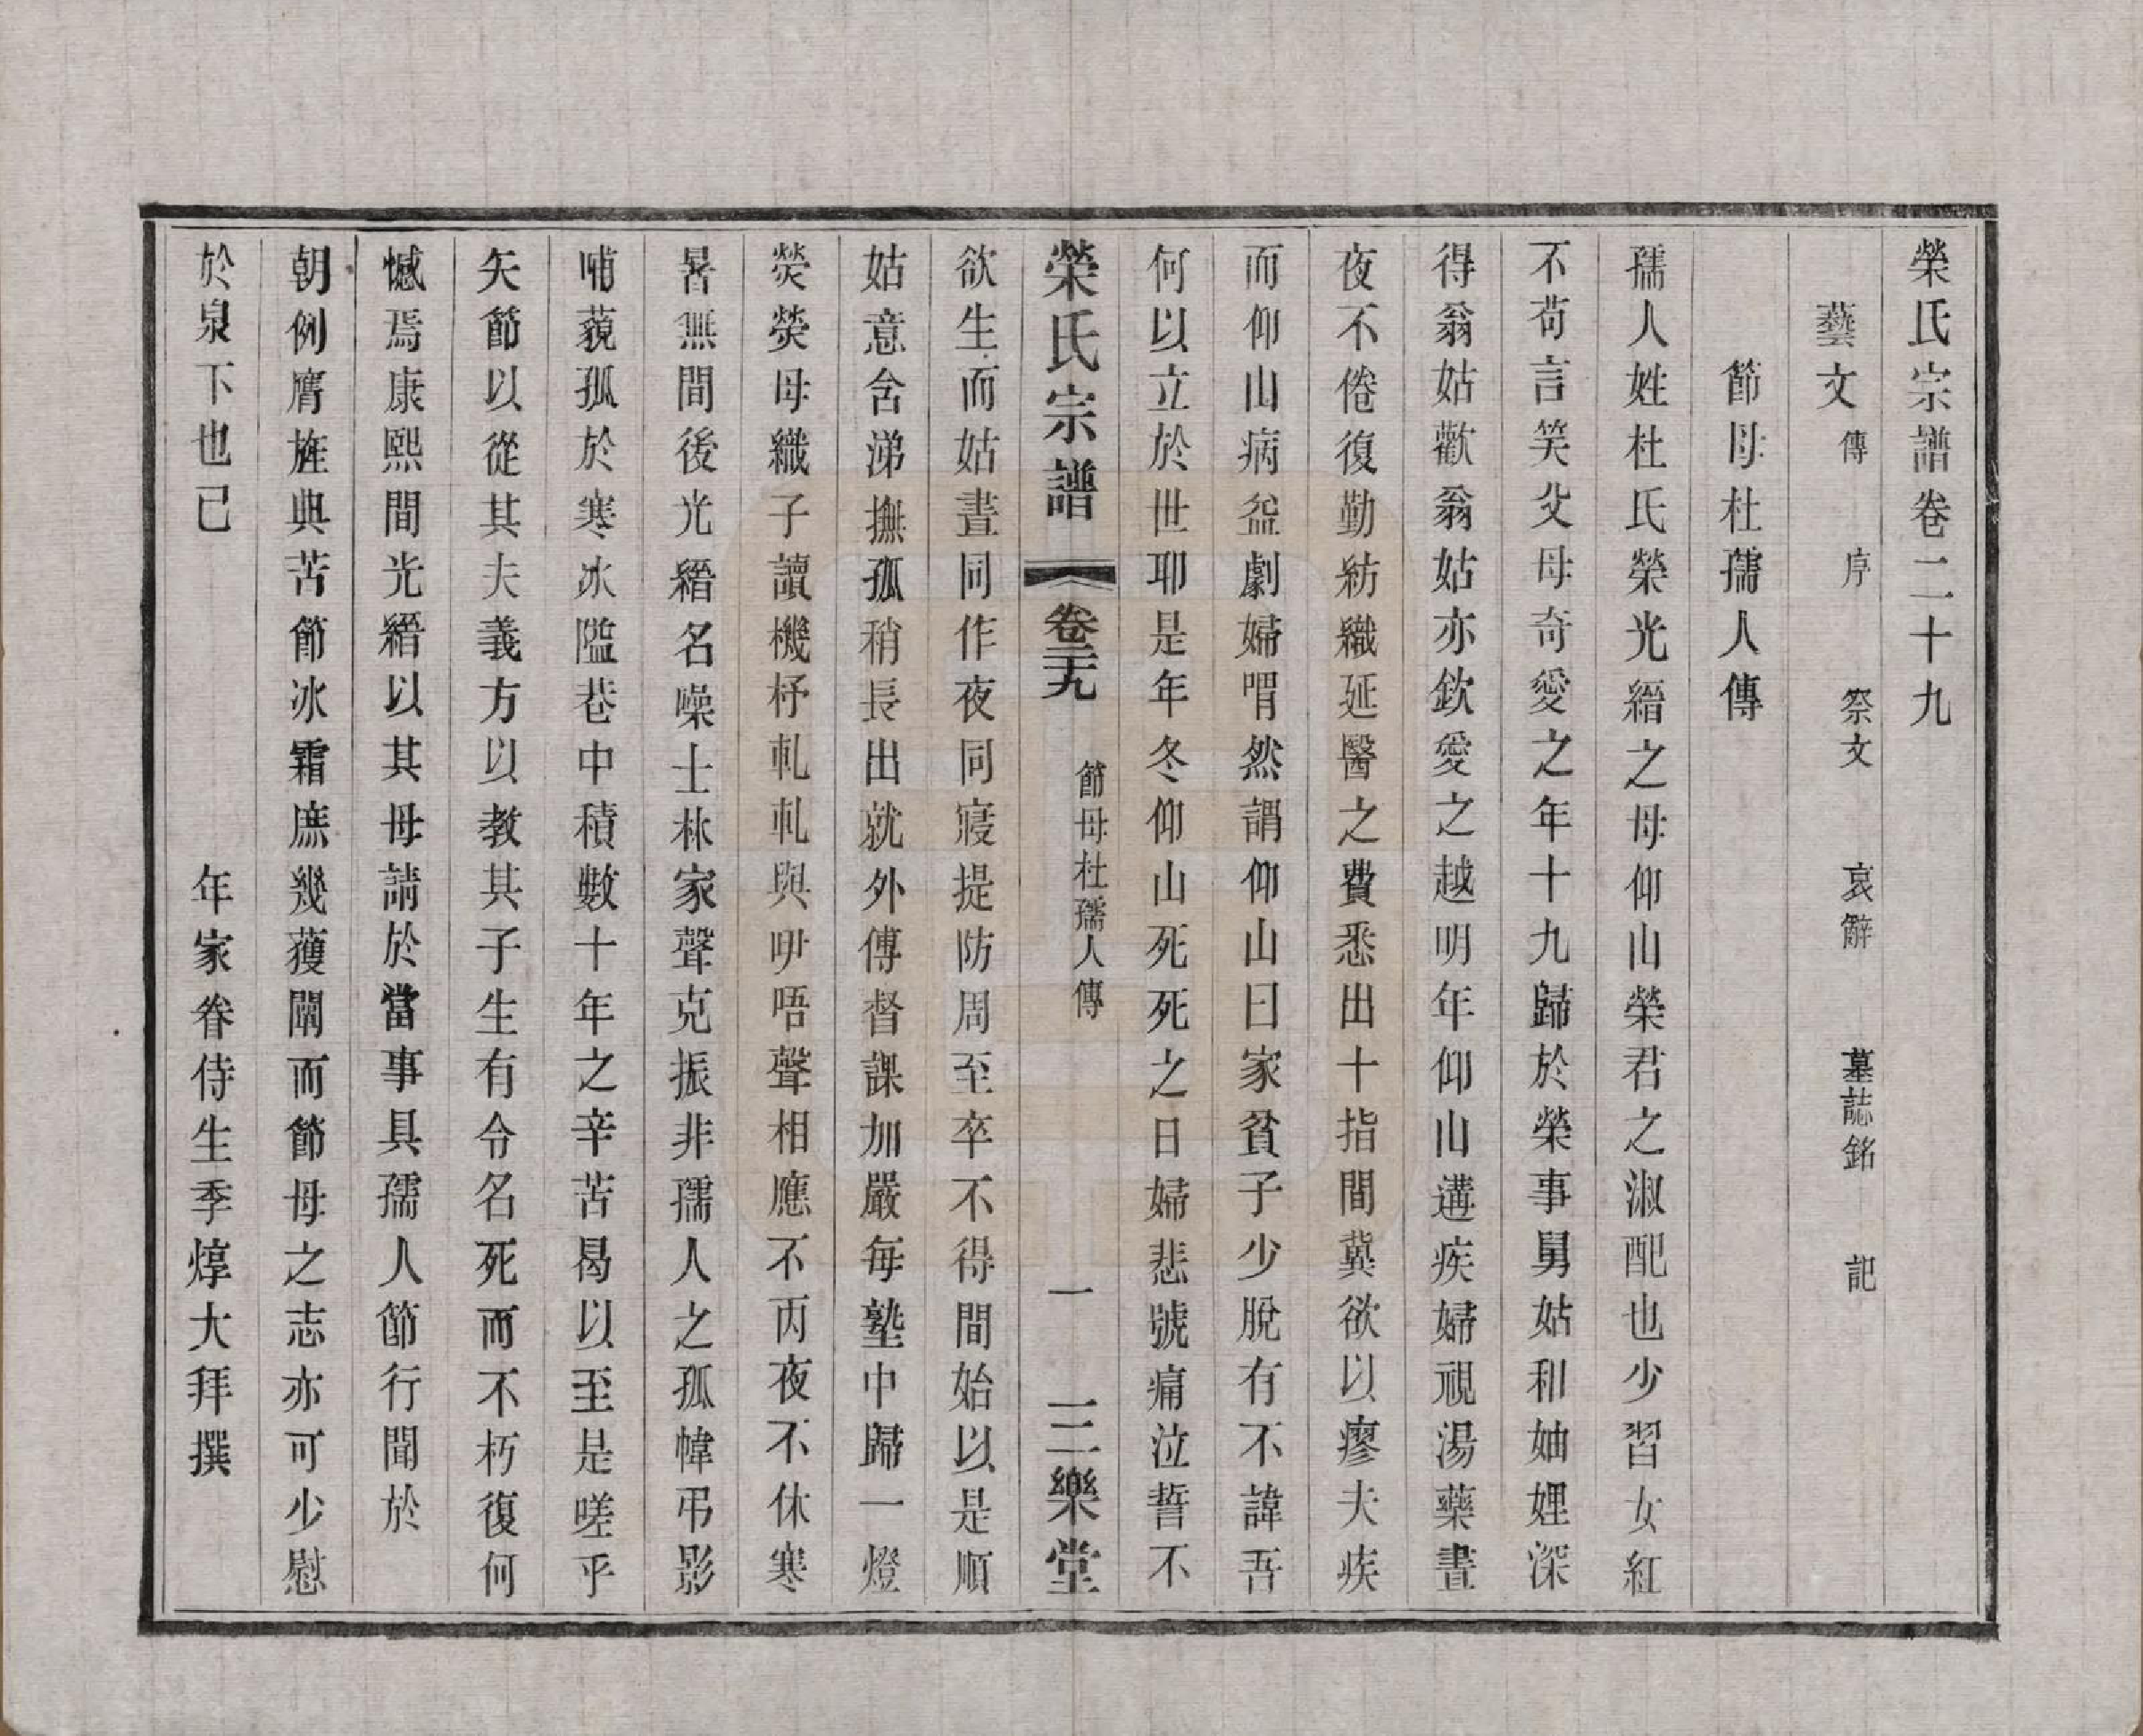 榮氏宗譜卷二十九
藝文 傳 序 祭文 哀辭 墓誌銘 記
節母杜孺人傳
孺人姓杜氏榮光縉之母仰山榮君之淑配也少習女紅
不苟言笑父母奇愛之年十九歸於榮事舅姑和妯娌深
得翁姑歡翁姑亦欽愛之越明年仰山遘疾婦視湯藥晝
夜不倦復勤紡織延醫之費悉出十指間冀欲以瘳夫疾
而仰山病益劇婦喟然謂仰山曰家貧子少脫有不諱吾
何以立於世耶是年冬仰山死死之日婦悲號痛泣誓不
榮氏宗譜 卷二十九 節母杜孺人傳 一 三樂堂
欲生而姑晝同作夜同寢提防周至卒不得間始以是順
姑意含涕撫孤稍長出就外傅督課加嚴每塾中歸一燈
熒熒母織子讀機杼軋軋與吚唔聲相應不丙夜不休寒
暑無間後光縉名噪士林家聲克振非孺人之孤幃弔影
哺藐孤於寒冰隘巷中積數十年之辛苦曷以至是嗟乎
矢節以從其夫義方以教其子生有令名死而不朽復何
憾焉康熙間光縉以其母請於當事具孺人節行聞於
朝例膺旌典苦節冰霜庶幾獲闡而節母之志亦可少慰
於泉下也已
年家眷侍生季焞大拜撰